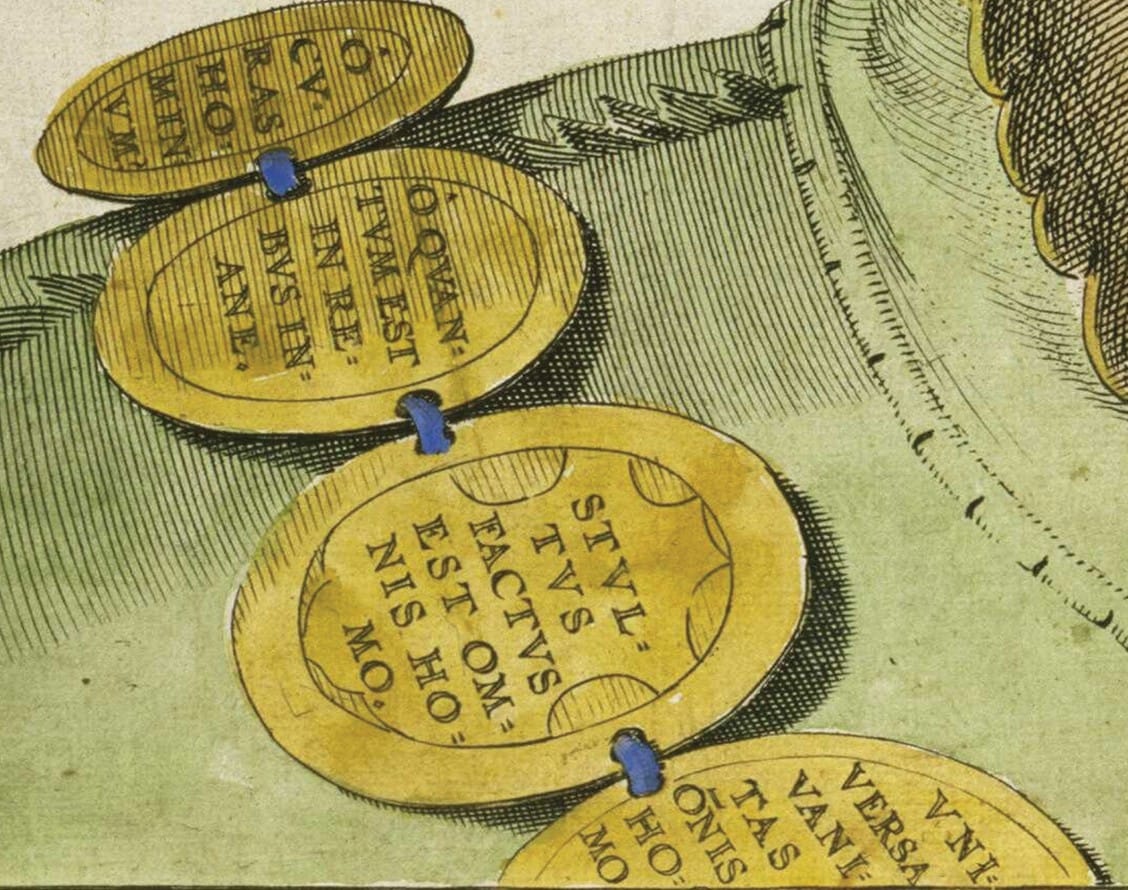 Ó
CV.
RAS
HO:
MIN
VM.
Ó QVAN=
TVM EST
IN RE=
BVS IN=
ANE.
STVL=
TVS
FACTVS
EST OM=
NIS HO=
MO.
VNI=
VERSA
VANI=
TAS
ŌNIS
HO=
MO